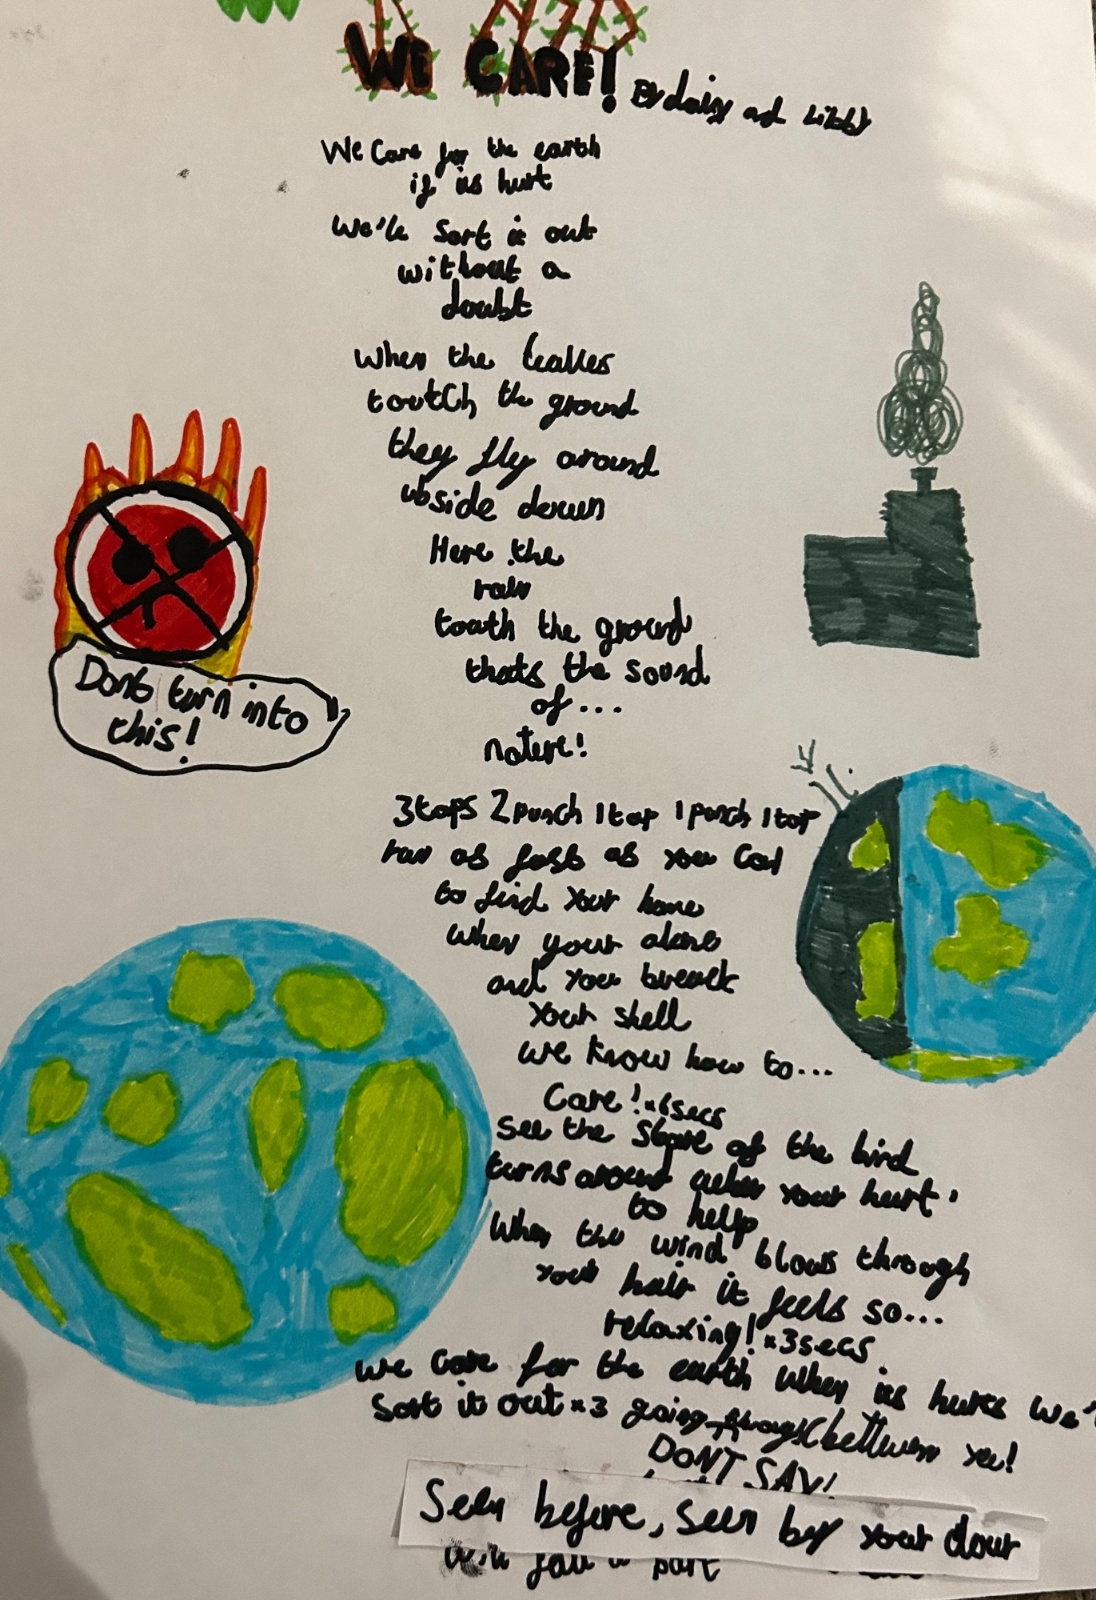 WE CARE! By daisy and Libby
We Care for the earth
if its hurt
We'll Sort it out
without a
doubt
when the leaves
toutch the ground
they fly around
ubside down
Here the
rain
touth the ground
thats the sound
of...
nature!
3 taps 2 punch 1 tap 1 punch 1 tap
run as fast as you can
to find your home
when your alone
and you breack
your shell
we know how to...
Care! x6secs
see the of the bird
turns around when your hurt
to help
When the wind blows through
your hair it feels so...
relaxing! x3secs
we care for the earth when its hurts we'
Sort it out x3 going
DONT SAY!
Seen before, seen by your dour
will fall a part
Dont turn into
this!